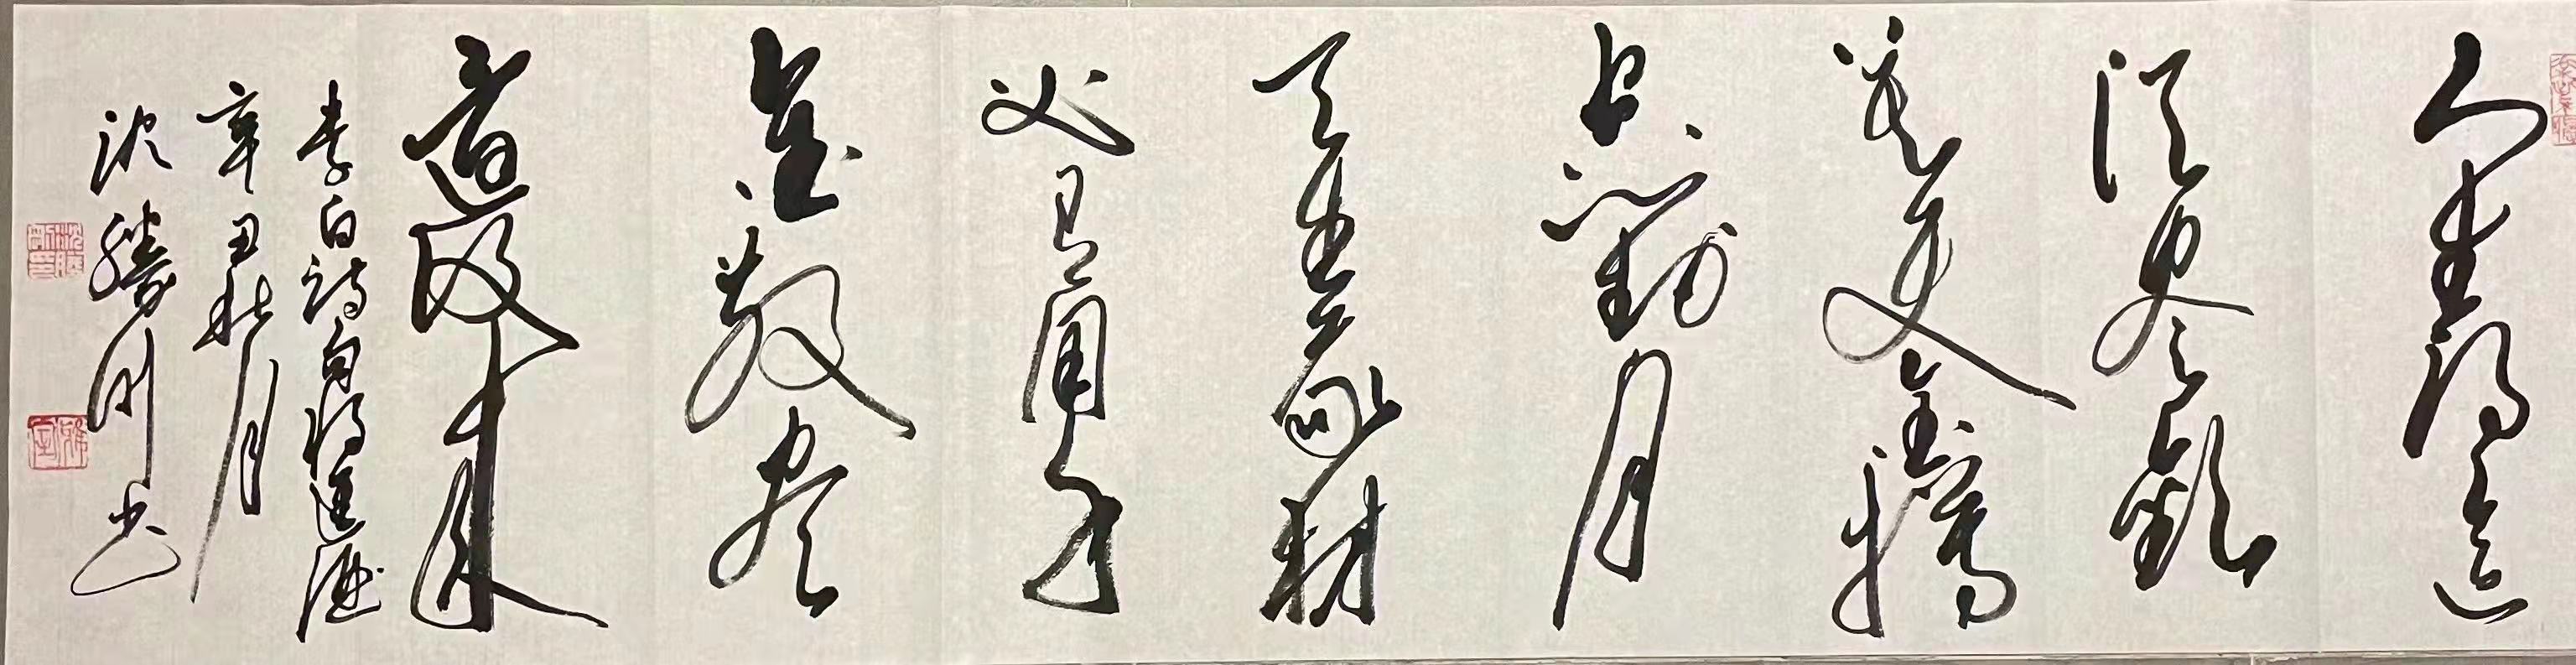 人生得意
須盡歡
莫使金樽
空對月
天生我材
必有用千
金散盡
還復來
李白詩句将進酒
辛丑秋月
沈勝刚书